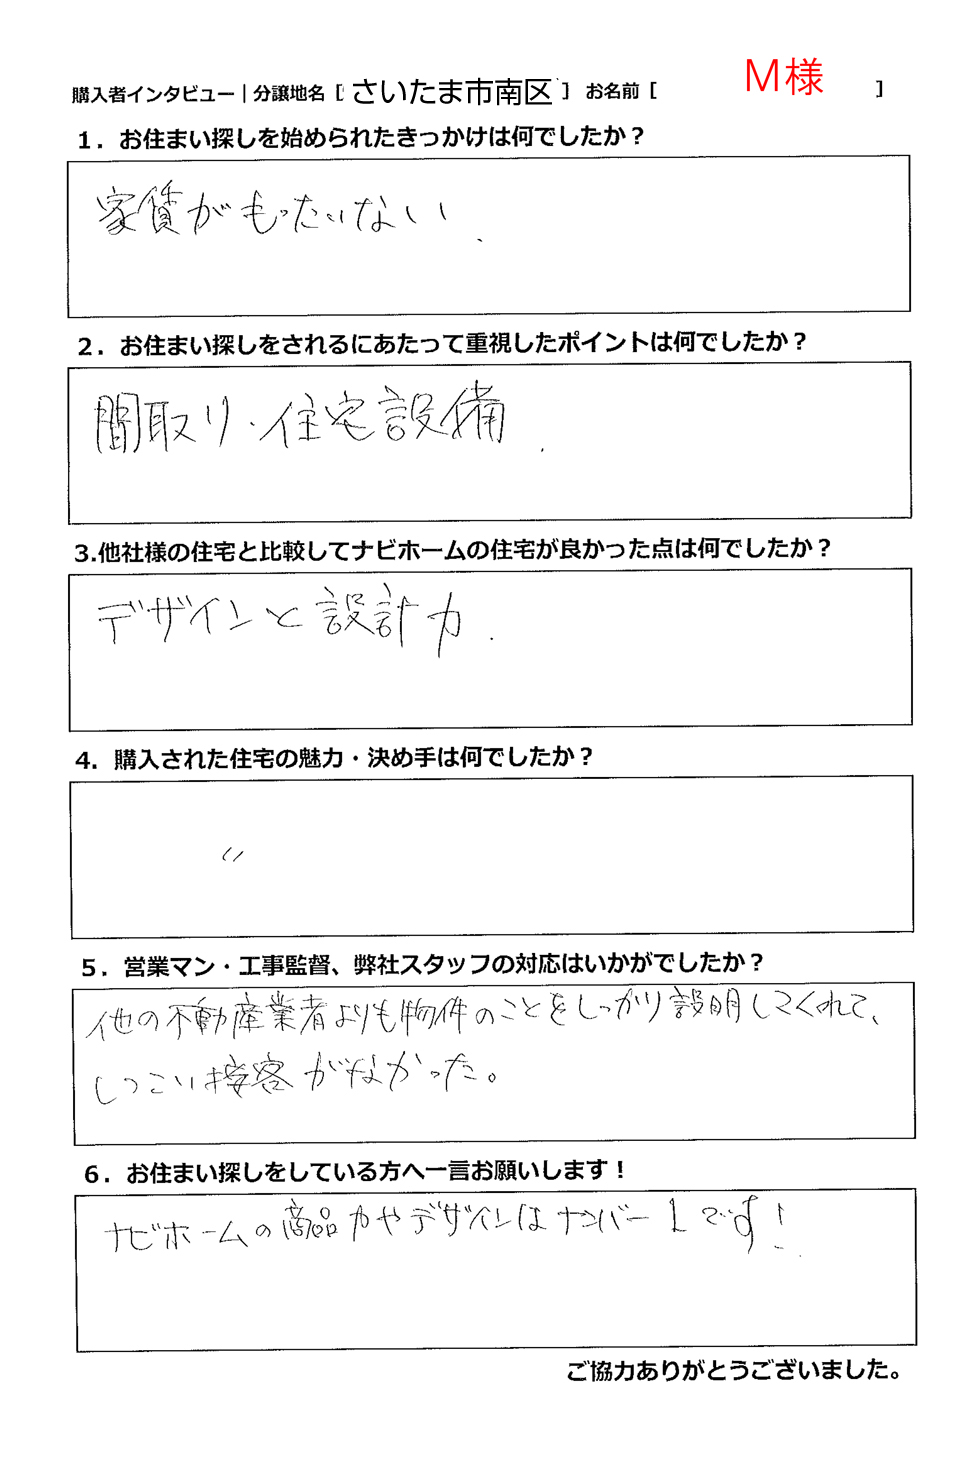 購入者インタビュー｜分譲地名［さいたま市南区］ お名前［ M様 ］
1．お住まい探しを始められたきっかけは何でしたか？
家賃がもったいない．
2．お住まい探しをされるにあたって重視したポイントは何でしたか？
間取り・住宅設備．
3.他社様の住宅と比較してナビホームの住宅が良かった点は何でしたか？
デザインと設計力．
4．購入された住宅の魅力・決め手は何でしたか？
〃
5．営業マン・工事監督、弊社スタッフの対応はいかがでしたか？
他の不動産業者よりも物件のことをしっかり説明してくれて、
しつこい接客がなかった。
6．お住まい探しをしている方へ一言お願いします！
ナビホームの商品力やデザインはナンバー1です！
ご協力ありがとうございました。